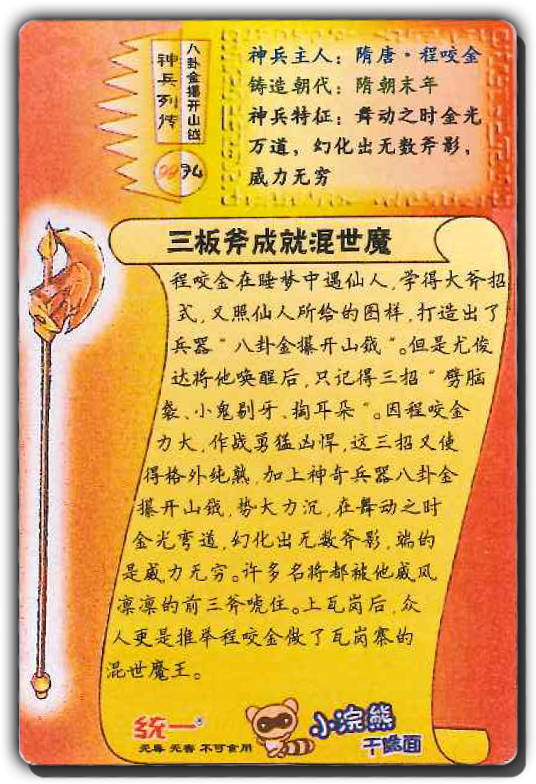 神兵列传
八卦金攥开山钺
94
神兵主人：隋唐·程咬金
铸造朝代：隋朝末年
神兵特征：舞动之时金光
万道，幻化出无数斧影，
威力无穷
三板斧成就混世魔
程咬金在睡梦中遇仙人，学得大斧招
式，又照仙人所给的图样，打造出了
兵器“八卦金攥开山钺”。但是尤俊
达将他唤醒后，只记得三招“劈脑
袋、小鬼剔牙、掏耳朵”。因程咬金
力大，作战勇猛凶悍，这三招又使
得格外纯熟，加上神奇兵器八卦金
攥开山钺，势大力沉，在舞动之时
金光弯道，幻化出无数斧影，端的
是威力无穷。许多名将都被他威风
凛凛的前三斧唬住。上瓦岗后，众
人更是推举程咬金做了瓦岗寨的
混世魔王。
统一®
无毒 无害 不可食用
小浣熊
干脆面